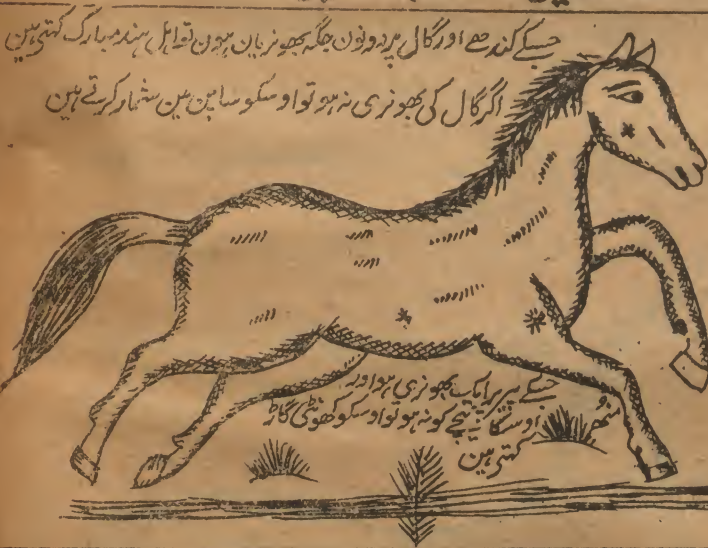 جسکے کندھے اور گال پر دونون جگہ بھونریان ہون تو اہل ہند مبارک کہتی ہین
اگر گال کی بھونری نہ ہو تو اوسکو سابن مین شمار کرتے ہین
جسکے پیر پر ایک بھونری ہو اور
منھ اوسکا نیچے کو نہ ہو تو اوسکو کھونٹی گاڑ
کہتی ہین